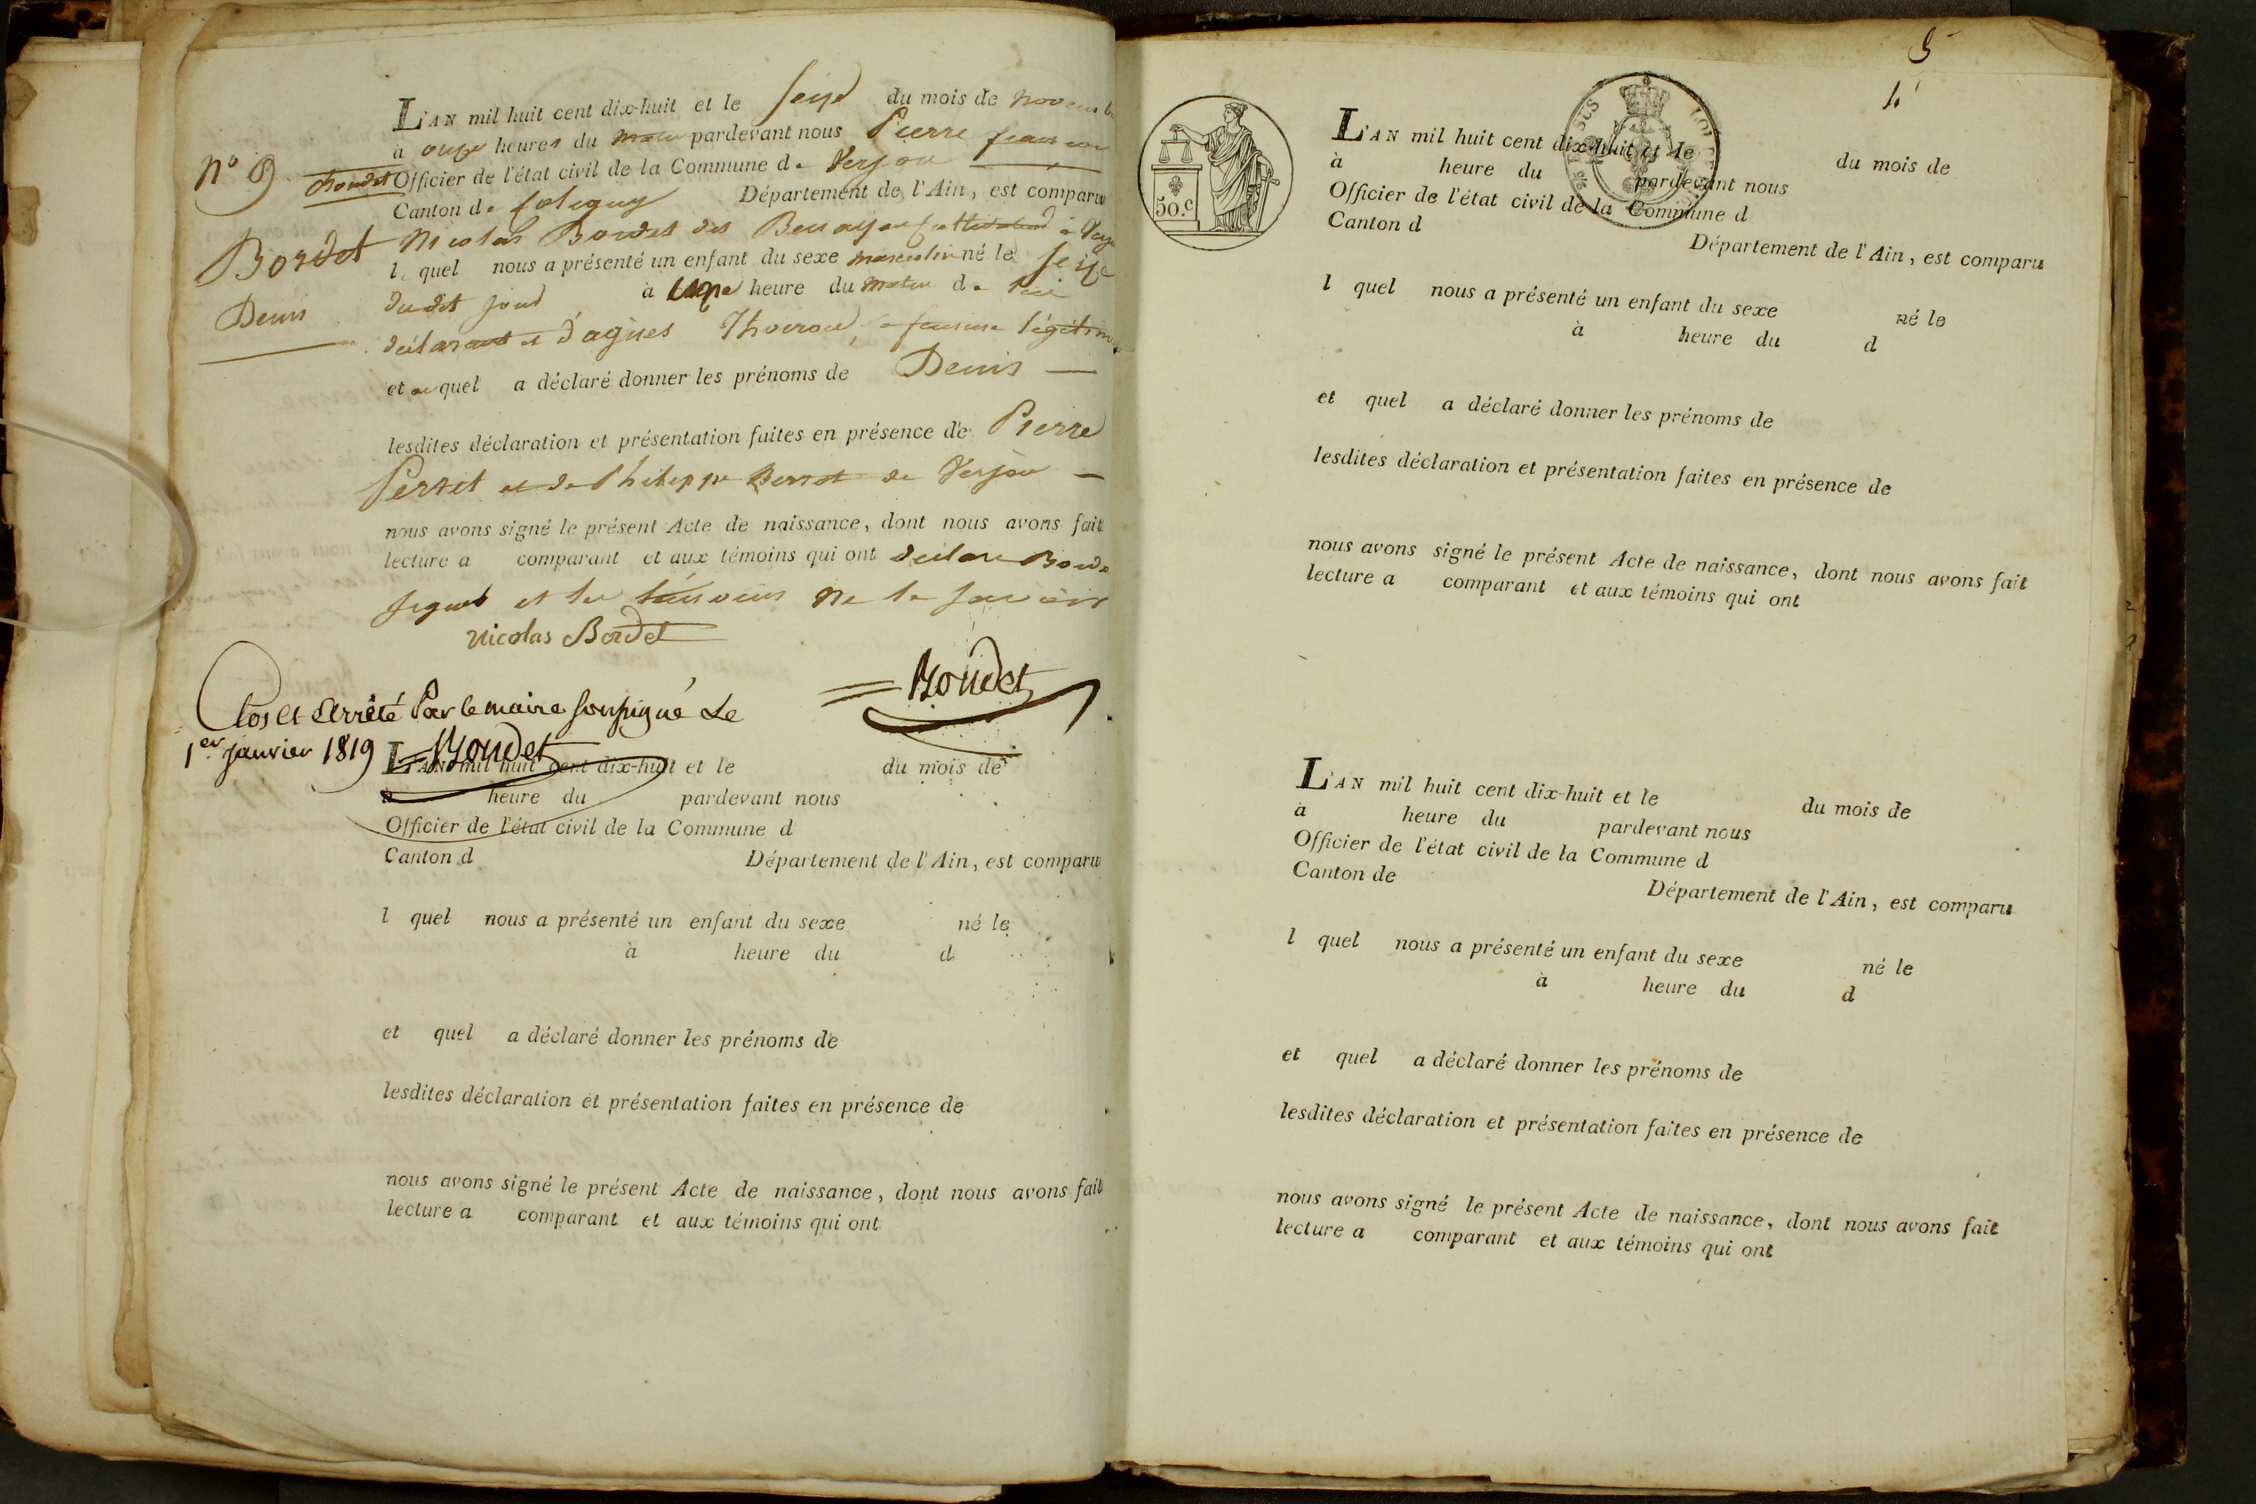 L'AN mil huit cent dix-huit et le seize du mois de novembre
à onze heures du matin pardevant nous Pierre françois
N° 9 Boudet Officier de l'état civil de la Commune de Verjon
Canton de Coligny Département de l'Ain, est comparu
Bordet Nicolas Bordet à
Denis
le quel nous a présenté un enfant du sexe masculin né le seize
dudit jour à heure du matin de lui
déclarant et d'agnes sa femme légitime
et au quel a déclaré donner les prénoms de Denis
lesdites déclaration et présentation faites en présence de Pierre
Perret et de Philippe de Verjon
nous avons signé le présent Acte de naissance, dont nous avons fait
lecture a comparant et aux témoins qui ont déclaré Bordet
signer et les témoins ne le savoir
Nicolas Bordet
Boudet
Clos et Arrêté Par le maire soussigné Le
1er janvier 1819 Boudet
L'AN mil huit cent dix-huit et le du mois de
à heure du pardevant nous
Officier de l'état civil de la Commune d
Canton d Département de l'Ain, est comparu
l quel nous a présenté un enfant du sexe né le
à heure du d
et quel a déclaré donner les prénoms de
lesdites déclaration et présentation faites en présence de
nous avons signé le présent Acte de naissance, dont nous avons fait
lecture a comparant et aux témoins qui ont
5
50.c
L'AN mil huit cent dix-huit et le du mois de
à heure du pardevant nous
Officier de l'état civil de la Commune d
Canton d Département de l'Ain, est comparu
l quel nous a présenté un enfant du sexe né le
à heure du d
et quel a déclaré donner les prénoms de
lesdites déclaration et présentation faites en présence de
nous avons signé le présent Acte de naissance, dont nous avons fait
lecture a comparant et aux témoins qui ont
L'AN mil huit cent dix-huit et le du mois de
à heure du pardevant nous
Officier de l'état civil de la Commune d
Canton de Département de l'Ain, est comparu
l quel nous a présenté un enfant du sexe né le
à heure du d
et quel a déclaré donner les prénoms de
lesdites déclaration et présentation faites en présence de
nous avons signé le présent Acte de naissance, dont nous avons fait
lecture a comparant et aux témoins qui ont